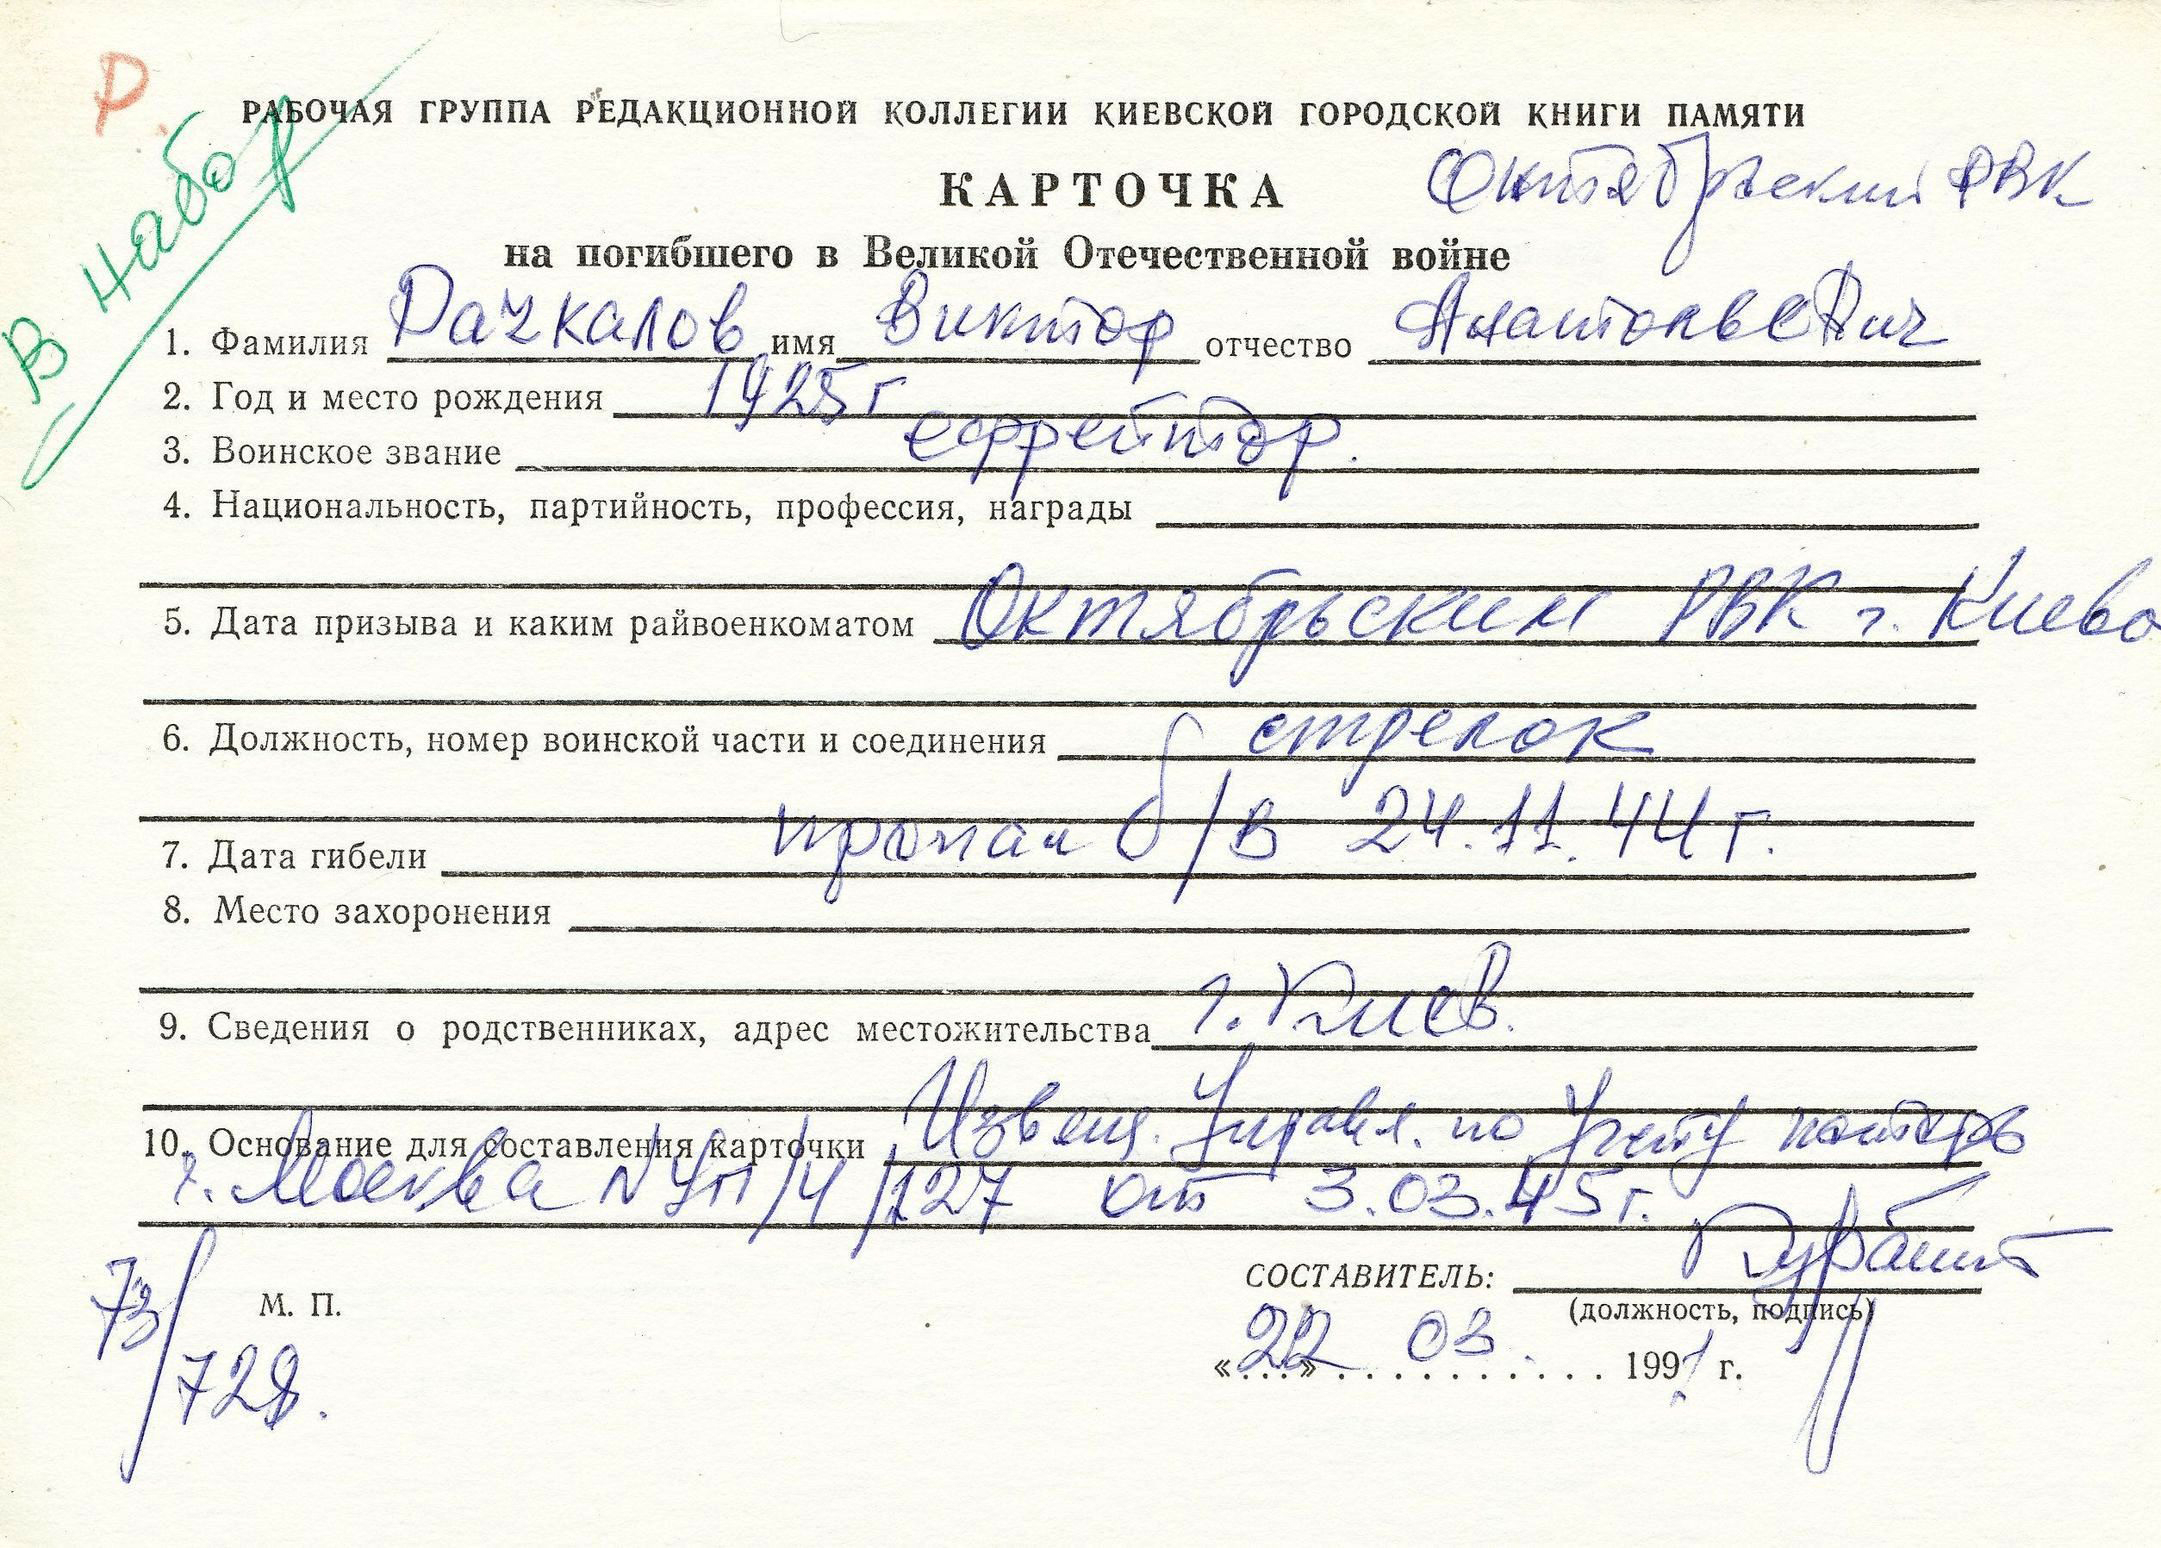 Р.
В набор
РАБОЧАЯ ГРУППА РЕДАКЦИОННОЙ КОЛЛЕГИИ КИЕВСКОЙ ГОРОДСКОЙ КНИГИ ПАМЯТИ
КАРТОЧКА Октябрьский РВК
на погибшего в Великой Отечественной войне
1. Фамилия Рачкалов имя Виктор отчество Анатольевич
2. Год и место рождения 1925 г
3. Воинское звание ефрейтор.
4. Национальность, партийность, профессия, награды
5. Дата призыва и каким райвоенкоматом Октябрьским РВК г. Киева
6. Должность, номер воинской части и соединения стрелок
7. Дата гибели пропал б/в 24.11.44 г.
8. Место захоронения
9. Сведения о родственниках, адрес местожительства г. Киев.
10. Основание для составления карточки Извещ. Управл. по Учету потерь
г. Москва N Уп/4/127 от 3.03.45 г.
СОСТАВИТЕЛЬ:
(должность, подпись)
73/728.
М. П.
«22» 03. 1991 г.